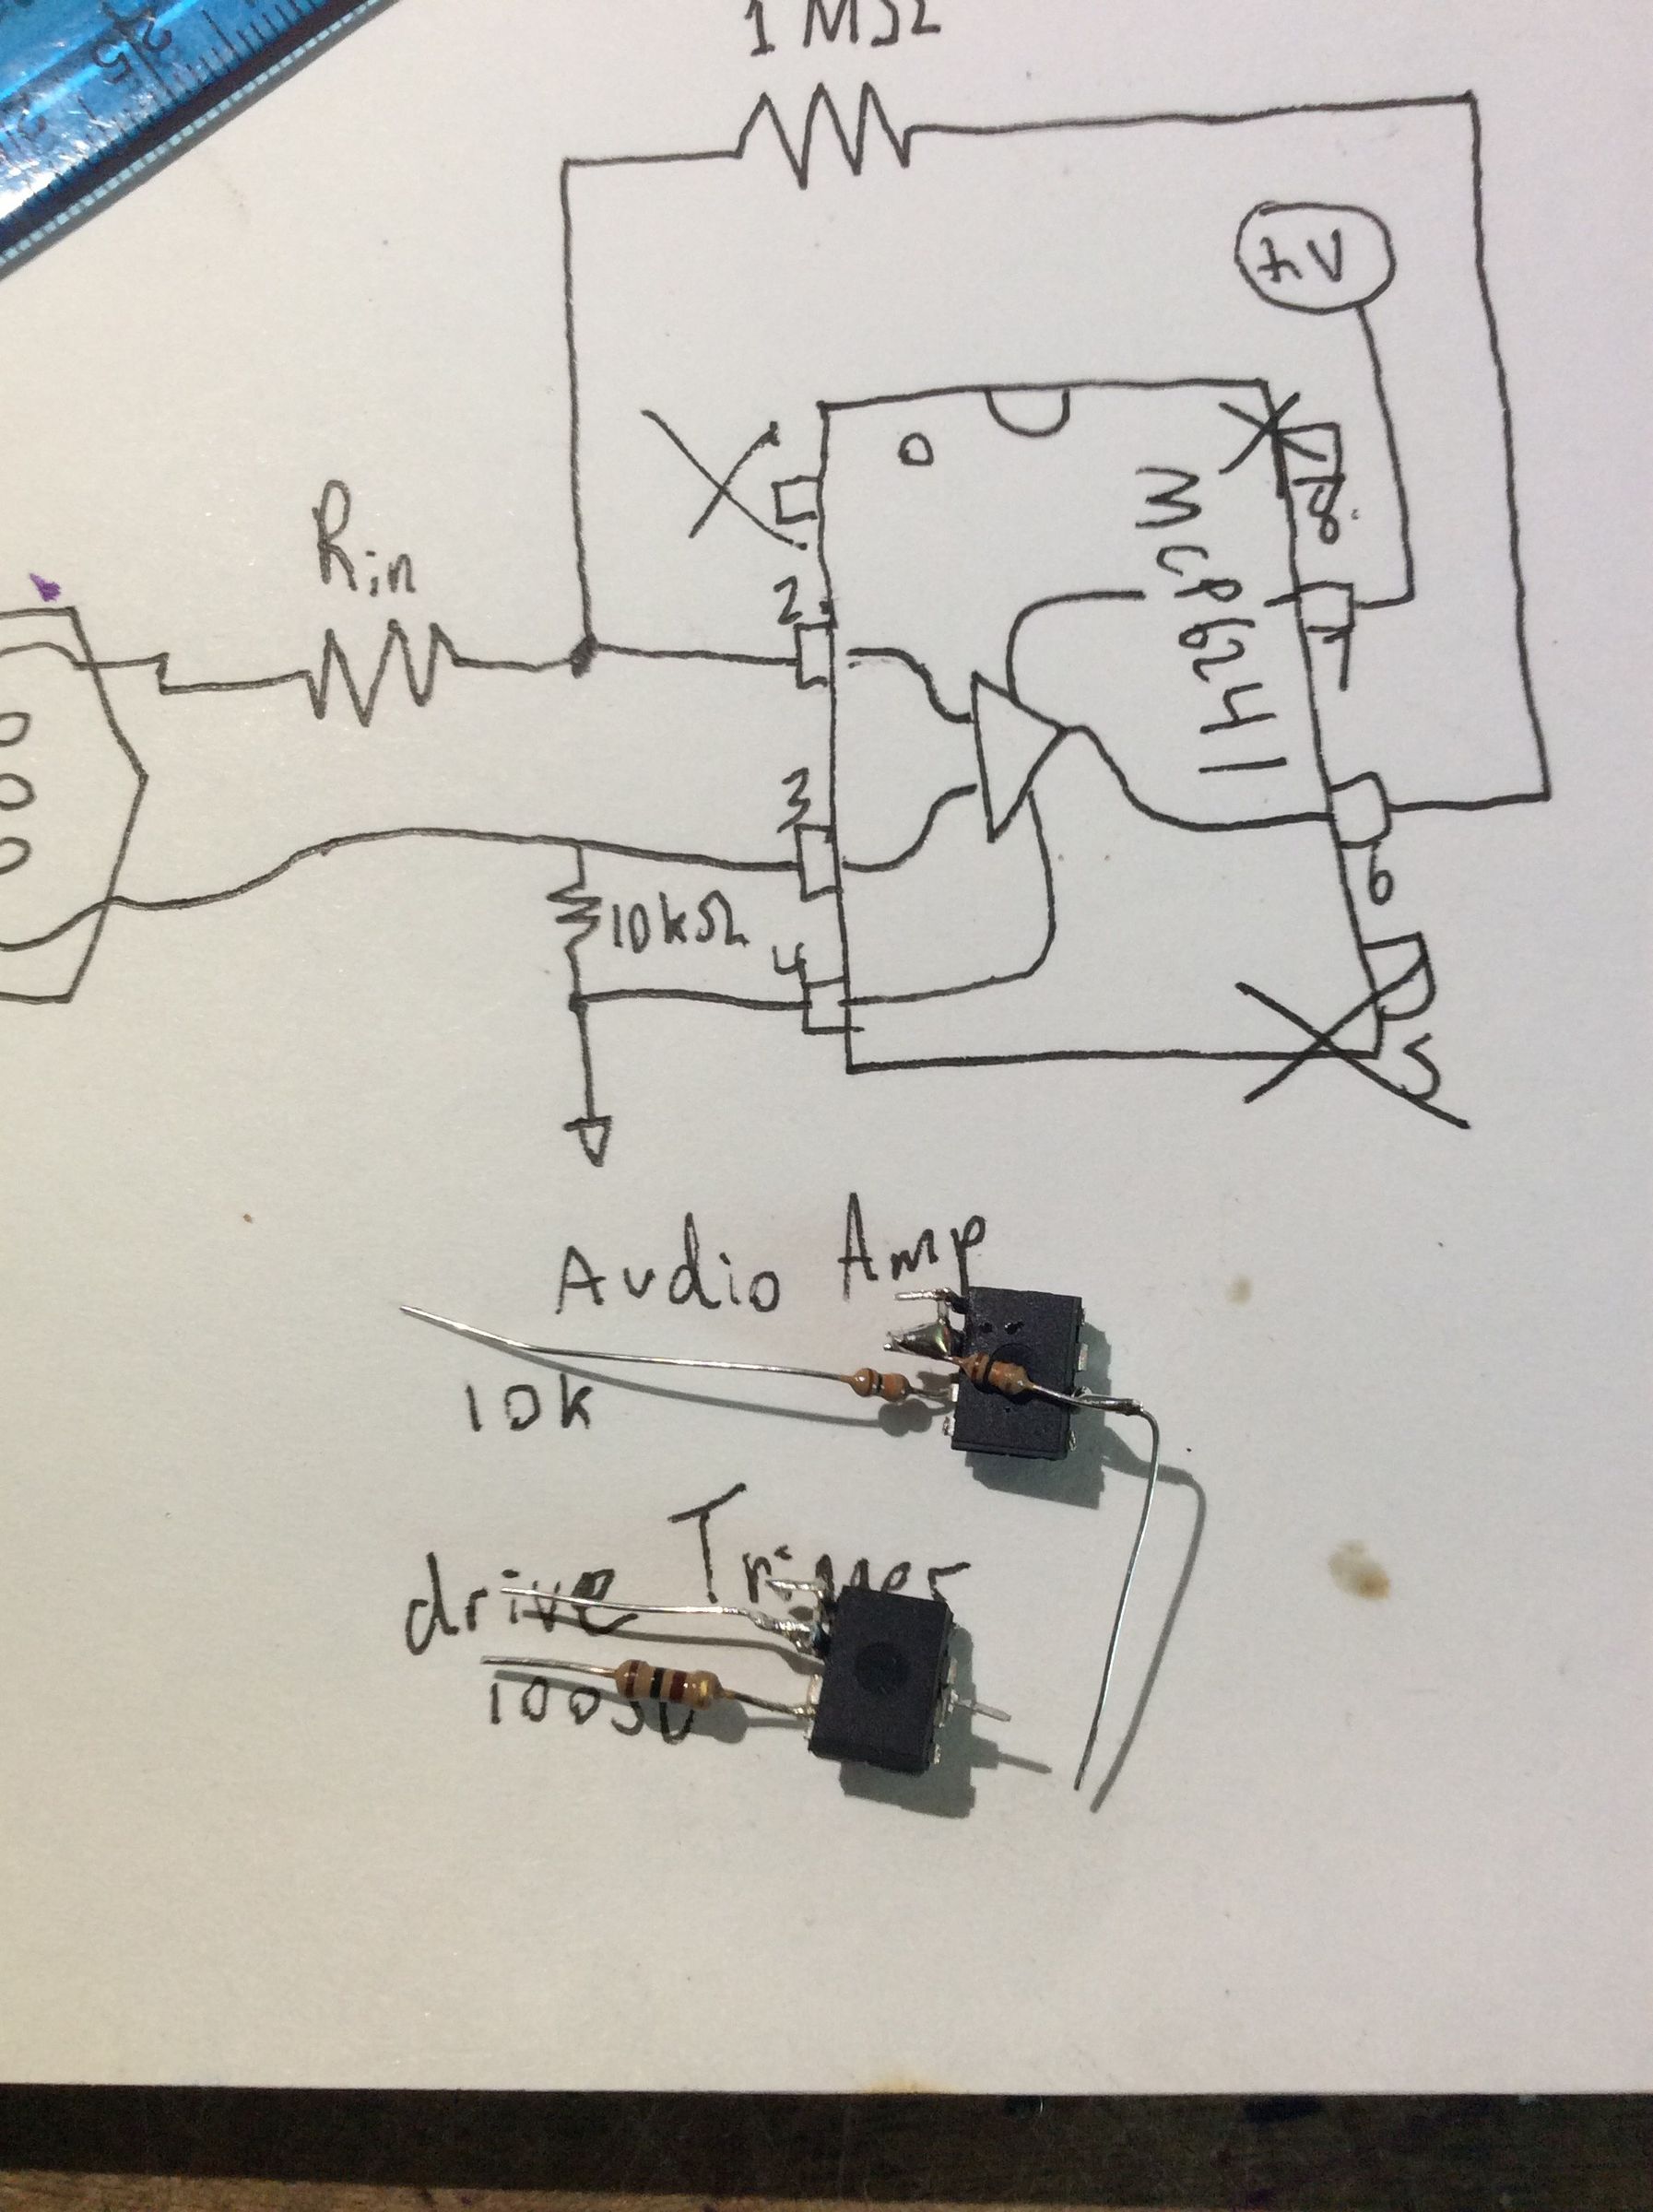 25
1 MΩ
+V
8
Rin
MCP6241
2
7
3
6
10kΩ
4
5
Audio Amp
10k
Trigger
drive
100Ω